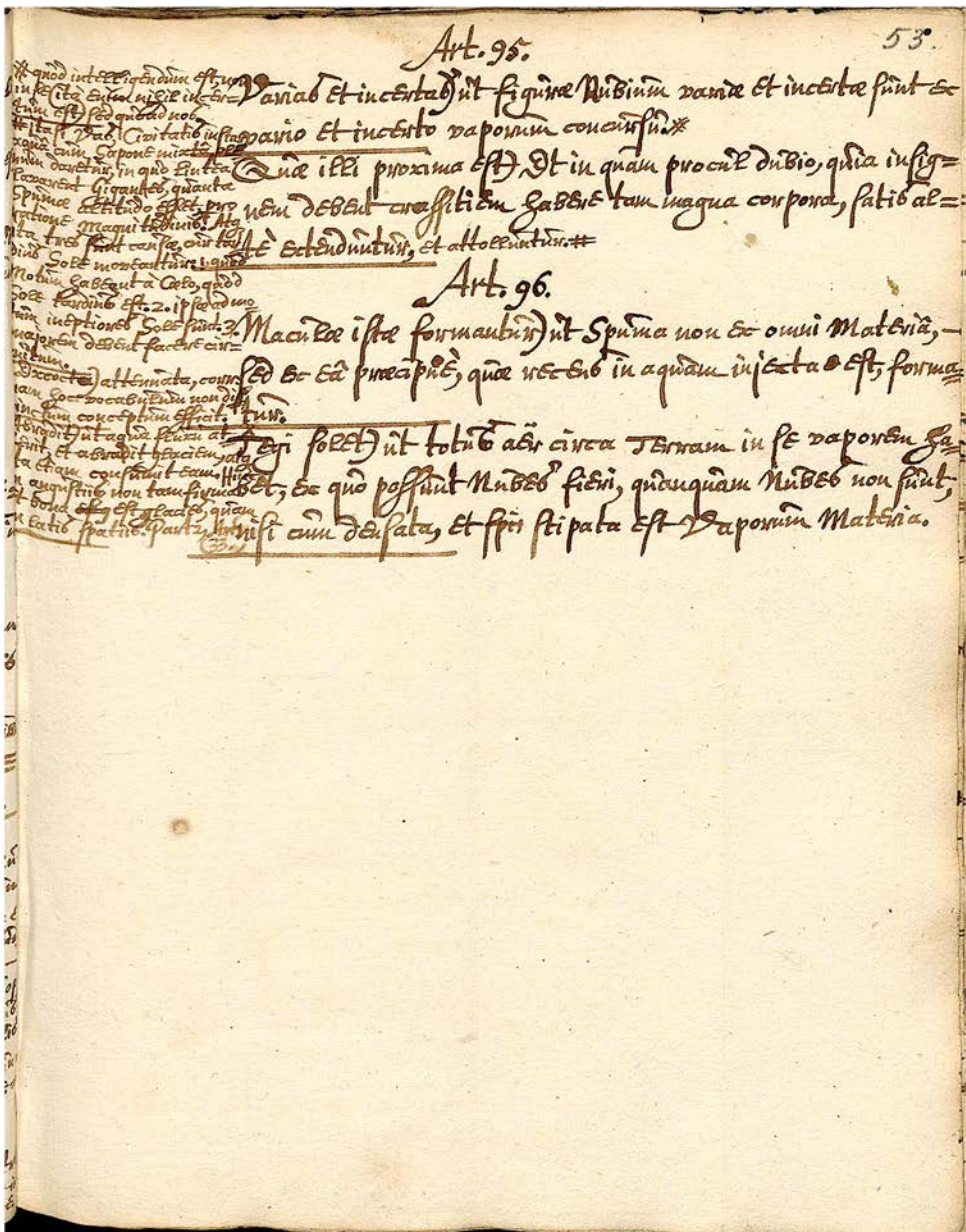 53.
Art. 95.
Varias et incertas) ut figuræ Nubium variæ et incertæ sunt ex
vario et incerto vaporum concursu.※
Quæ illi proxima est) Et in quam procul dubio, quia insig=
nem debent crassitiem habere tam magna corpora, satis al=
tè extenduntur, et attolluntur.#
Art. 96.
Maculæ istæ formantur) ut Spuma non ex omni Materiâ, –
sed ex eâ præcipuè, quæ recens in aquam injecta est, forma-
tur.
Tegi solet) ut totus aër circa Terram in se vaporem ha-
bet, ex quo possunt Nubes fieri, quanquam Nubes non sunt,
nisi cum densata, et stipata est Vaporum Materia.
※ quod intelligendum est, non
in se (ita enim nihil incer=
tum est) sed quoad nos.
# ita si Vas, Civitatis instar
aquâ cum Sapone
daretur, in quo Lintea
lavarent Gigantes, quanta
Spumæ altitudo esset pro
ratione magnitudinis. Atq
ita tres sunt causæ, cur tar
diùs Sole moveantur: 1. quod
Motum habeant à Cœlo, quod
Sole tardius est. 2. ipsæ ad mo
tum ineptiores Sole sunt. 3.
majorem debent facere cir=
cuitum.
attenuata,
hoc vocabulum non dis
tinctum conceptum efficit.
ut aqua
et abradit glaciem, atq
etiam consumit eam.
angustiis non tam firma
et bona est glacies, quam
in latis spatiis. Part. 2. Art.